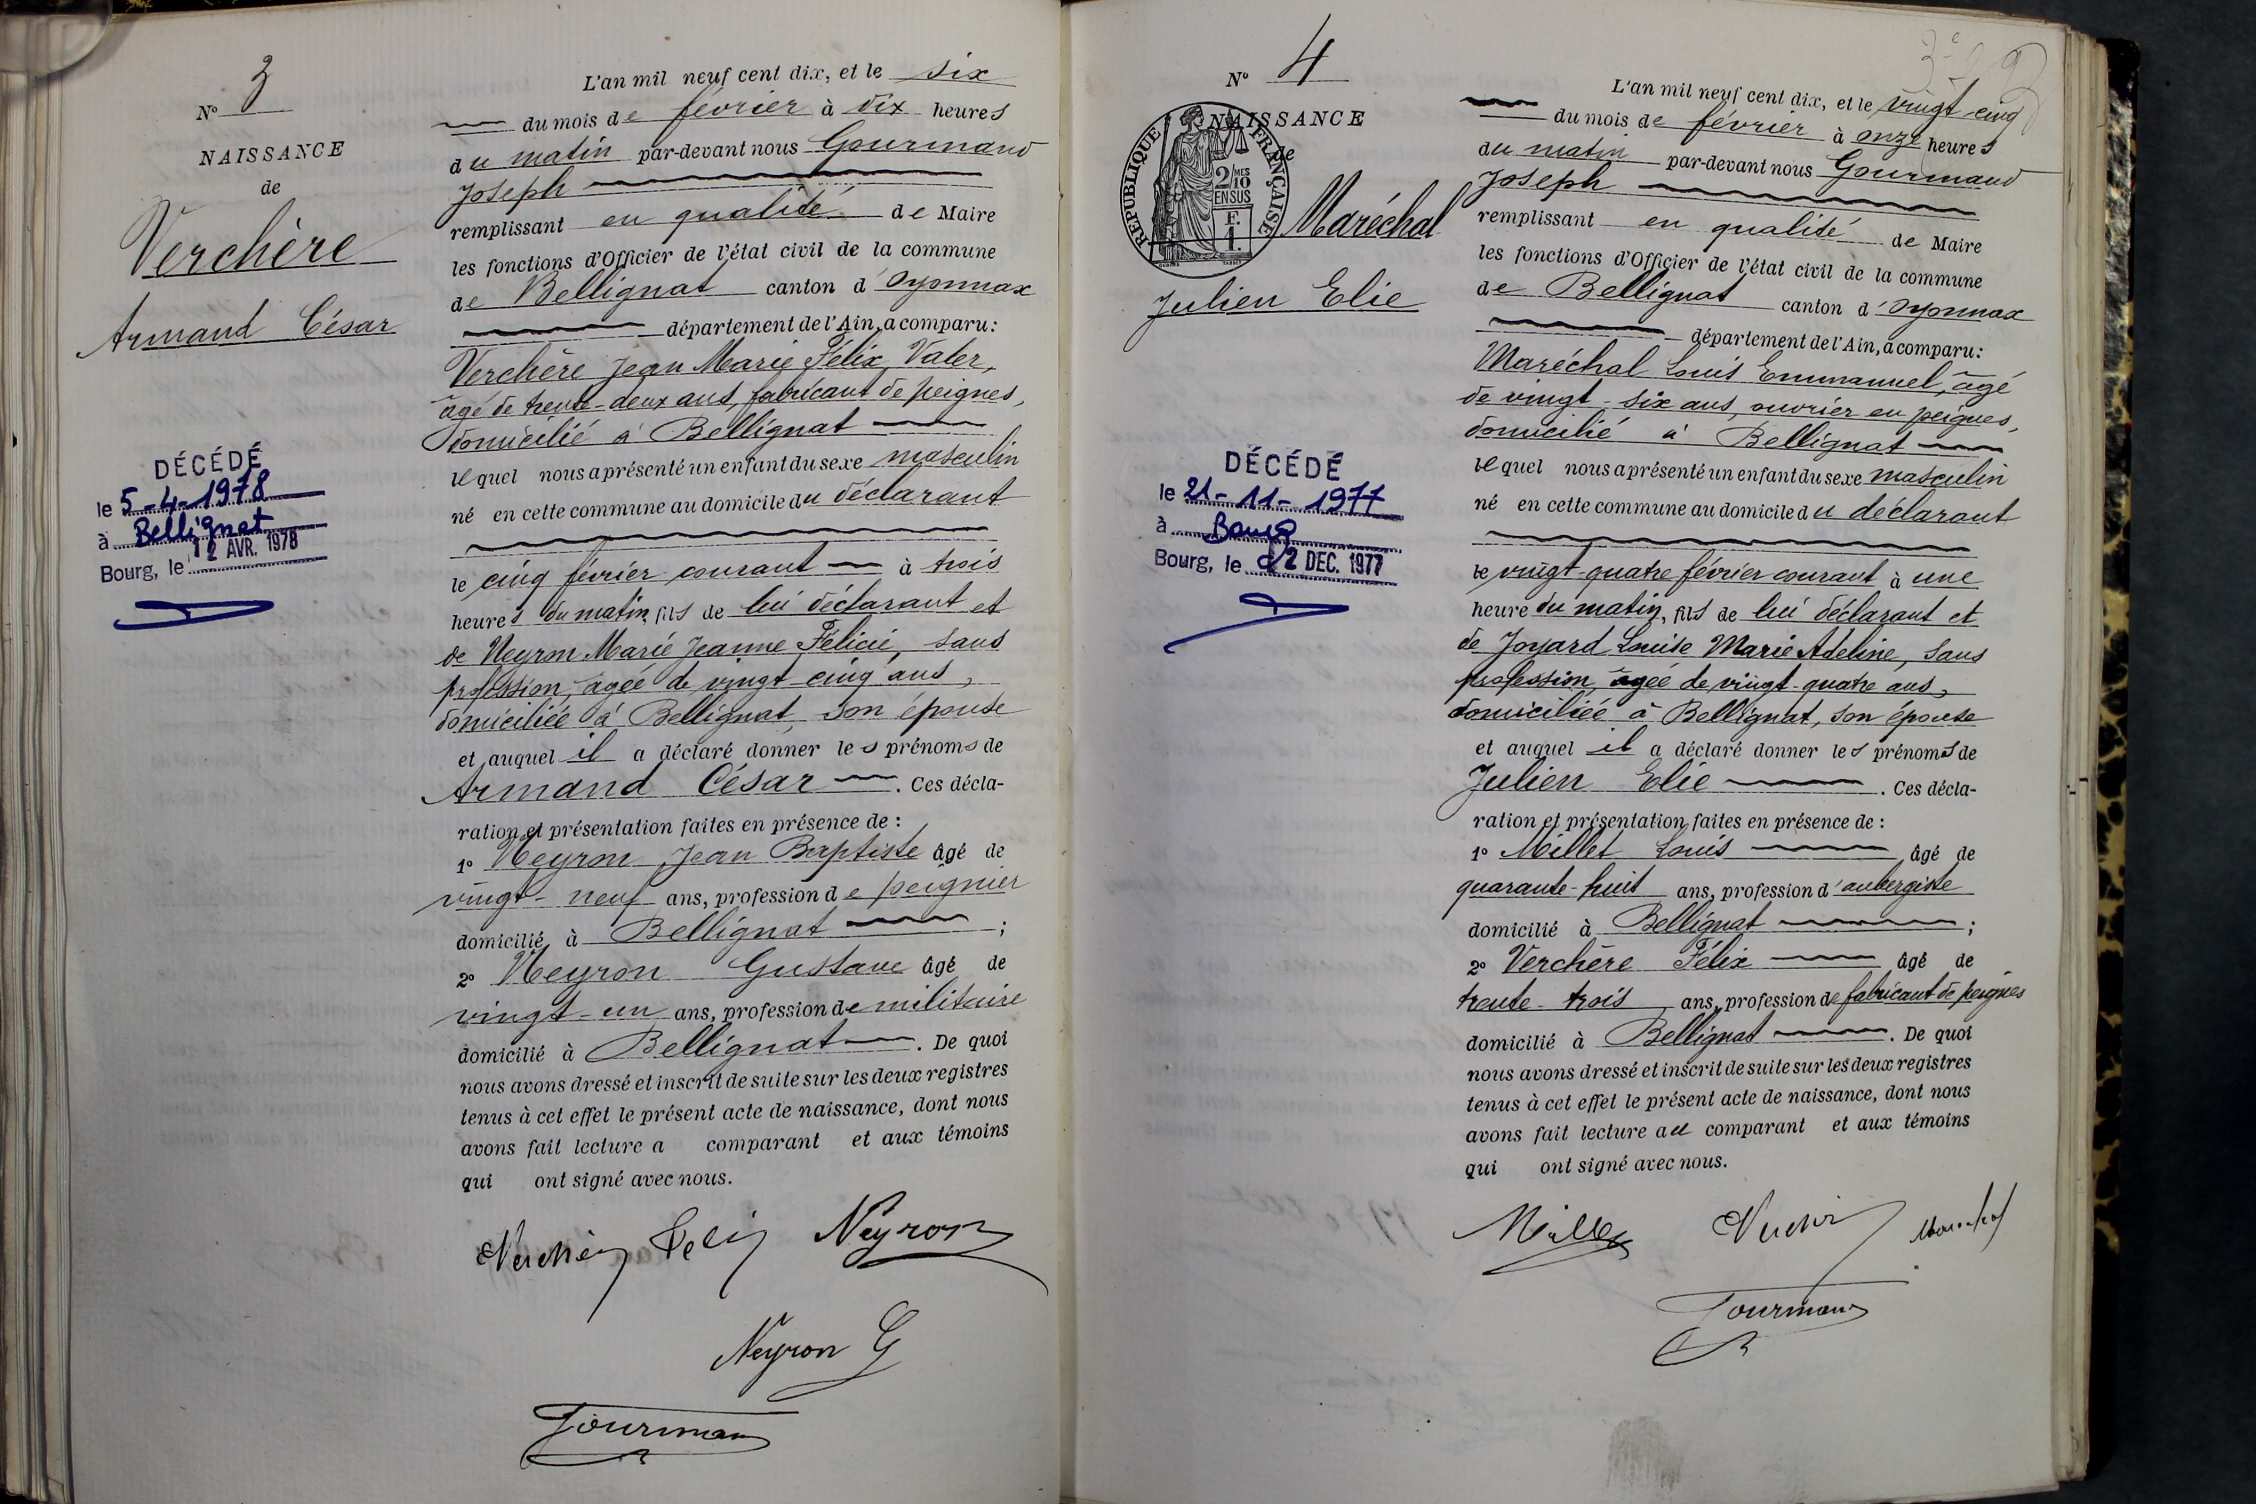 Nº 3
NAISSANCE
de
Verchère
Armand César
DÉCÉDÉ
le 5-4-1978
à Bellignat
Bourg, le 12 AVR. 1978
L'an mil neuf cent dix, et le six
du mois de février à dix heures
du matin par-devant nous Gourmand
Joseph
remplissant en qualité de Maire
les fonctions d'Officier de l'état civil de la commune
de Bellignat canton d'Oyonnax
département de l'Ain, a comparu:
Verchère Jean Marie Félix Valer,
âgé de trente-deux ans, fabricant de peignes,
domicilié à Bellignat
lequel nous a présenté un enfant du sexe masculin
né en cette commune au domicile du déclarant
le cinq février courant à trois
heures du matin, fils de lui déclarant et
de Neyron Marie Jeanne Félicie, sans
profession, âgée de vingt-cinq ans,
domiciliée à Bellignat, son épouse
et auquel il a déclaré donner les prénoms de
Armand César . Ces décla-
ration et présentation faites en présence de :
1º Neyron Jean Baptiste âgé de
vingt-neuf ans, profession de peignier
domicilié à Bellignat ;
2º Neyron Gustave âgé de
vingt-un ans, profession de militaire
domicilié à Bellignat . De quoi
nous avons dressé et inscrit de suite sur les deux registres
tenus à cet effet le présent acte de naissance, dont nous
avons fait lecture a comparant et aux témoins
qui ont signé avec nous.
Neyron
Neyron G
Nº 4
NAISSANCE
de
REPUBLIQUE FRANÇAISE
2/10 MES
EN SUS
F.
1.
Maréchal
Julien Elie
DÉCÉDÉ
le 21-11-1977
à Bourg
Bourg, le 2 DEC. 1977
L'an mil neuf cent dix, et le vingt-cinq
du mois de février à onze heures
du matin par-devant nous Gourmand
Joseph
remplissant en qualité de Maire
les fonctions d'Officier de l'état civil de la commune
de Bellignat canton d'Oyonnax
département de l'Ain, a comparu:
Maréchal Louis Emmanuel, âgé
de vingt-six ans, ouvrier en peignes,
domicilié à Bellignat
lequel nous a présenté un enfant du sexe masculin
né en cette commune au domicile du déclarant
le vingt-quatre février courant à une
heure du matin, fils de lui déclarant et
de Joyard Louise Marie Adeline, sans
profession, âgée de vingt-quatre ans,
domiciliée à Bellignat, son épouse
et auquel il a déclaré donner les prénoms de
Julien Elie . Ces décla-
ration et présentation faites en présence de :
1º Millet Louis âgé de
quarante-huit ans, profession d'aubergiste
domicilié à Bellignat ;
2º Verchère Félix âgé de
trente-trois ans, profession de fabricant de peignes
domicilié à Bellignat . De quoi
nous avons dressé et inscrit de suite sur les deux registres
tenus à cet effet le présent acte de naissance, dont nous
avons fait lecture au comparant et aux témoins
qui ont signé avec nous.